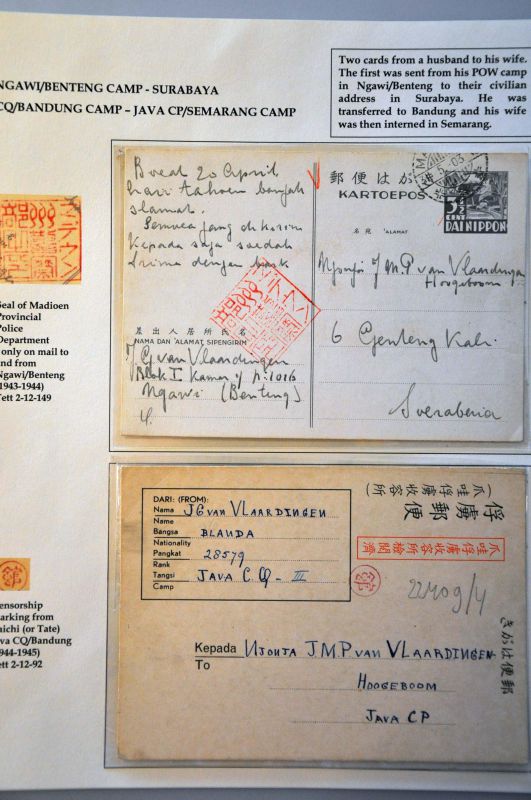 NGAWI/BENTENG CAMP - SURABAYA
CQ/BANDUNG CAMP – JAVA CP/SEMARANG CAMP
Two cards from a husband to his wife.
The first was sent from his POW camp
in Ngawi/Benteng to their civilian
address in Surabaya. He was
transferred to Bandung and his wife
was then interned in Semarang.
Seal of Madioen
Provincial
Police
Department
only on mail to
and from
Ngawi/Benteng
(1943-1944)
Tett 2-12-149
20 April
slamat.
Semua jang dikirim
kepada saja soedah
trima dengan baik
郵便はが
KARTOEPOS
名宛 'ALAMAT
3½
CENT
DAI NIPPON
M.P van Vlaardingen
Hoogeboom
6 Genteng Kali
Soerabaia
差出人居所氏名
NAMA DAN 'ALAMAT SIPENGIRIM
G van Vlaardingen
Blok I Kamar
Ngawi (Benteng)
Censorship
marking from
Taichi (or Tate)
Java CQ/Bandung
(1944-1945)
Tett 2-12-92
DARI: (FROM):
Name JG VAN VLAARDINGEN
Name
Bangsa BLANDA
Nationality
Pangkat 28579
Rank
Tangsi JAVA C.Q - III
Camp
俘虜郵便
(爪哇俘虜收容所)
爪哇俘虜收容所檢閲濟
舘
22409/4
きがは便郵
Kepada NJONJA J.M.P VAN VLAARDINGEN-
To
HOOGEBOOM
JAVA CP